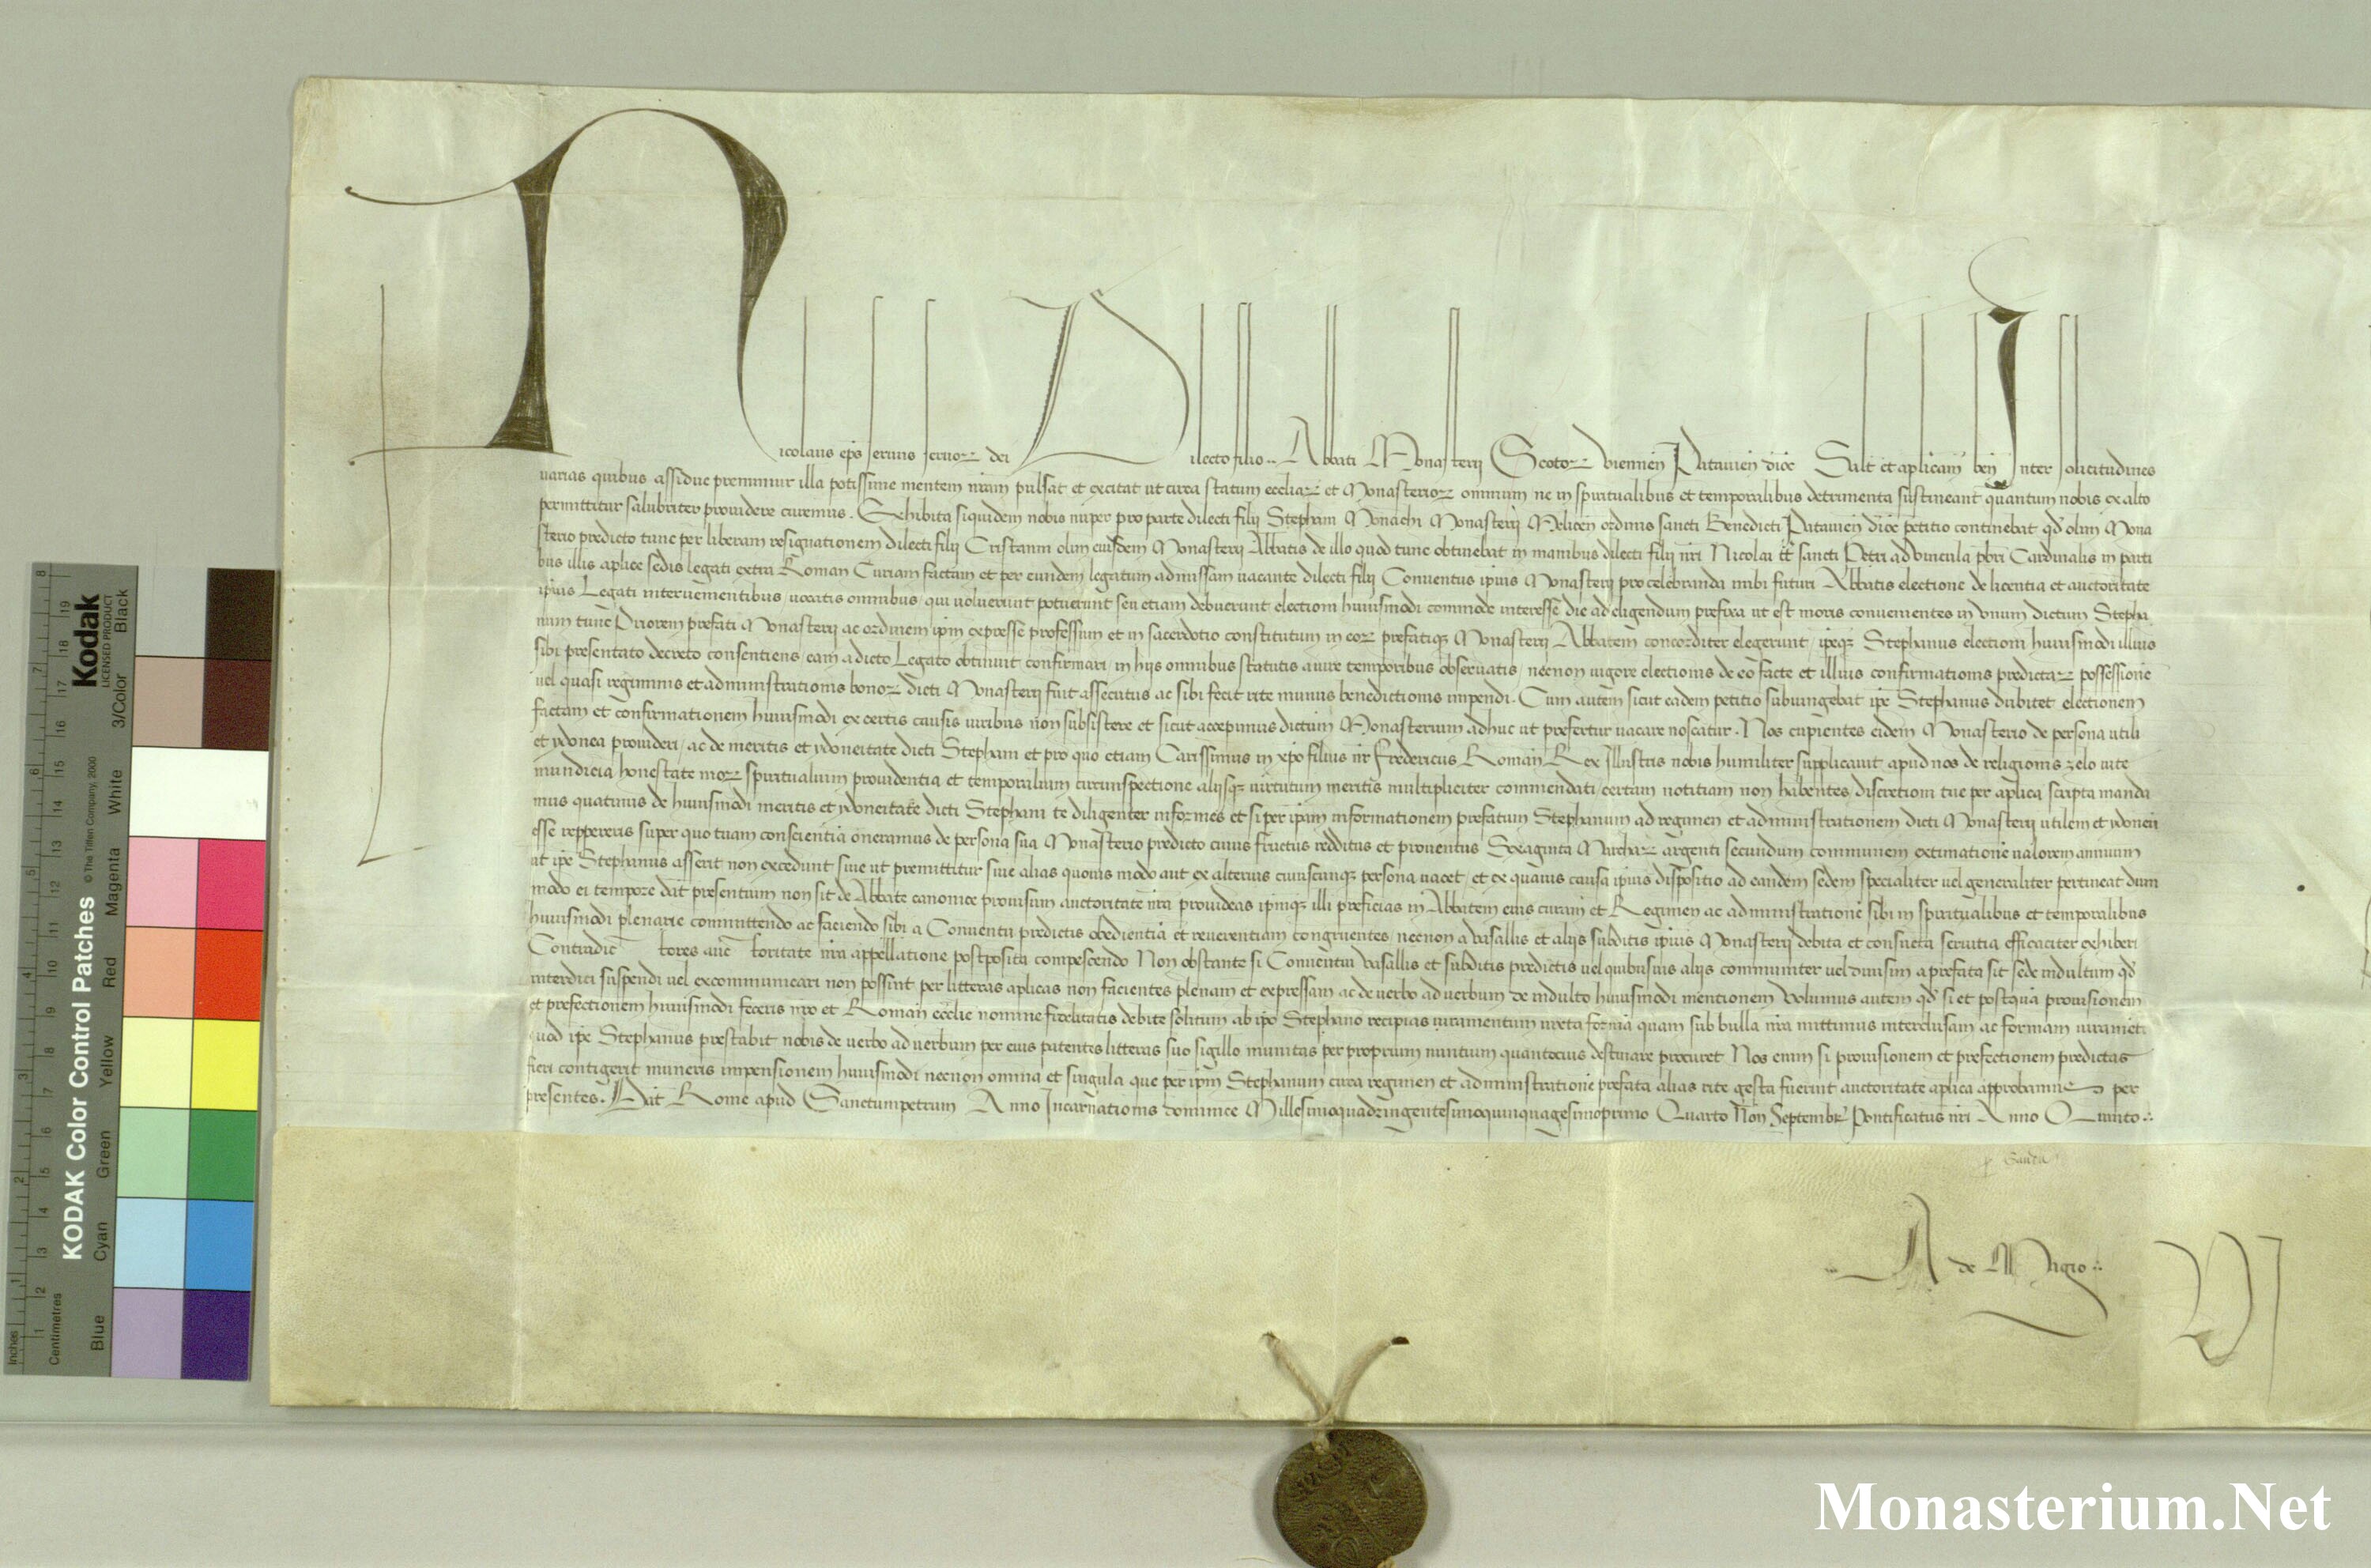 Nicolaus ep̄s seruus seruoꝝ dei Dilecto filio .. Abbati Monasterij Scotoꝝ Viennen̄ Patauien̄ dioc̄ Salt̄ et aplicam̄ ben̄ Inter solicitudines
varias quibus assidue premimur illa potissime mentem nr̄am pulsat et excitat ut circa statum eccliaꝝ et Monasterioꝝ omnium ne in spiritualibus et temporalibus detrimenta sustineant quantum nobis ex alto
permittitur salubriter prouidere curemus . Exhibita siquidem nobis nuper pro parte dilecti filij Stephani Monachi Monasterij Mellicen̄ ordinis sancti Benedicti Patauien̄ dioc̄ petitio continebat qd̄ olim Mona
sterio predicto tunc per liberam resignationem dilecti filij Cristanni olim eiusdem Monasterij Abbatis de illo quod tunc obtinebat in manibus dilecti filij nr̄i Nicolai tt̄ sancti Petri ad vincula pb̄ri Cardinalis in parti
bus illis aplice sedis legati extra Roman̄ Curiam factam et per eundem legatum admissam uacante dilecti filij Conuentus ip̄ius Monasterij pro celebranda inibi futuri Abbatis electione de licentia et auctoritate
ip̄ius Legati interuenientibus / uocatis omnibus / qui uoluerunt potuerunt seu etiam debuerunt electioni huiusmodi commode interesse die ad eligendum prefixa ut est moris conuenientes in vnum dictum Stepha
num tunc Priorem prefati Monasterij ac ordinem ip̄m expresse professum et in sacerdotio constitutum in eoꝝ prefatiqꝫ Monasterij Abbatem concorditer elegerunt / ip̄eqꝫ Stephanus electioni huiusmodi illius
sibi presentato decreto consentiens / eam a dicto Legato obtinuit confirmari / in hijs omnibus statutis a iure temporibus obseruatis / necnon uigore electionis de eo facte et illius confirmationis predictaꝝ possessionē
uel quasi regiminis et administrationis bonoꝝ dicti Monasterij fuit assecutus ac sibi fecit rite munus benedictionis impendi . Cum autem sicut eadem petitio subiungebat ip̄e Stephanus dubitet electionem
factam et confirmationem huiusmodi ex certis causis uiribus non subsistere et sicut accepimus dictum Monasterium adhuc ut prefertur uacare noscatur . Nos cupientes eidem Monasterio de persona utili
et ydonea prouideri / ac de meritis et ydoneitate dicti Stephani et pro quo etiam Carissimus in xp̄o filius nr̄ Fredericus Roman̄ Rex Illustris nobis humiliter supplicauit apud nos de religionis zelo uite
mundicia honestate moꝝ spiritualium prouidentia et temporalium circunspectione alijsqꝫ uirtutum meritis multipliciter commendati / certam notitiam non habentes / discretioni tue per aplica scripta manda
mus quatinus de huiusmodi meritis et ydoneitate dicti Stephani te diligenter informes et si per ip̄am informationem prefatum Stephanum ad regimen et administrationem dicti Monasterij utilem et ydoneū
esse reppereris super quo tuam conscientiā oneramus de persona sua Monasterio predicto cuius fructus redditus et prouentus Sexaginta Marchaꝝ argenti secundum communem extimationē ualorem annuum
ut ip̄e Stephanus asserit non excedunt siue ut premittitur siue alias quouis modo aut ex alterius cuiuscunqꝫ persona uacet / et ex quauis causa ip̄ius dispositio ad eandem sedem specialiter uel generaliter pertineat dum
modo ei tempore dat̄ presentium non sit de Abbate canonice prouisum auctoritate nr̄a prouideas ip̄umqꝫ illi preficias in Abbatem eius curam et Regimen ac administrationē sibi in spiritualibus et temporalibus
huiusmodi plenarie committendo ac faciendo sibi a Conuentu predictis obedientiā et reuerentiam congruentes / necnon a vasallis et alijs subditis ip̄ius Monasterij debita et consueta seruitia efficaciter exhiberi
Contradic̄ tores auc̄ toritate nr̄a appellatione postposita compescendo Non obstante si Conuentui vasallis et subditis predictis uel quibusuis alijs communiter uel diuisim a prefata sit sede indultum qd̄
interdici suspendi uel excommunicari non possint per litteras aplicas non facientes plenam et expressam ac de uerbo ad uerbum de indulto huiusmodi mentionem Volumus autem qd̄ si et postquā prouisionem
et prefectionem huiusmodi feceris nr̄o et Roman̄ ecclie nomine fidelitatis debite solitum ab ip̄o Stephano recipias iuramentum iuxta formā quam sub bulla nr̄a mittimus interclusam ac formam iuramēti
quod ip̄e Stephanus prestabit nobis de uerbo ad uerbum per eius patentes litteras suo sigillo munitas per proprium nuntium quantocius destinare procuret Nos enim si prouisionem et prefectionem predictas
fieri contigerit muneris impensionem huiusmodi necnon omnia et singula que per ip̄m Stephanum circa regimen et administrationē prefata alias rite gesta fuerint auctoritate aplica approbamus per
presentes . Dat̄ Rome apud Sanctumpetrum Anno Incarnationis dominice Millesimoquadringentesimoquinquagesimoprimo Quarto Non̄ Septembr̄ Pontificatus nr̄i Anno Quinto .
A de Magio
Monasterium.Net
KODAK Color Control Patches
Kodak
LICENSED PRODUCT
© The Tiffen Company, 2000
Blue Cyan Green Yellow Red Magenta White 3/Color Black
Inches
Centimetres